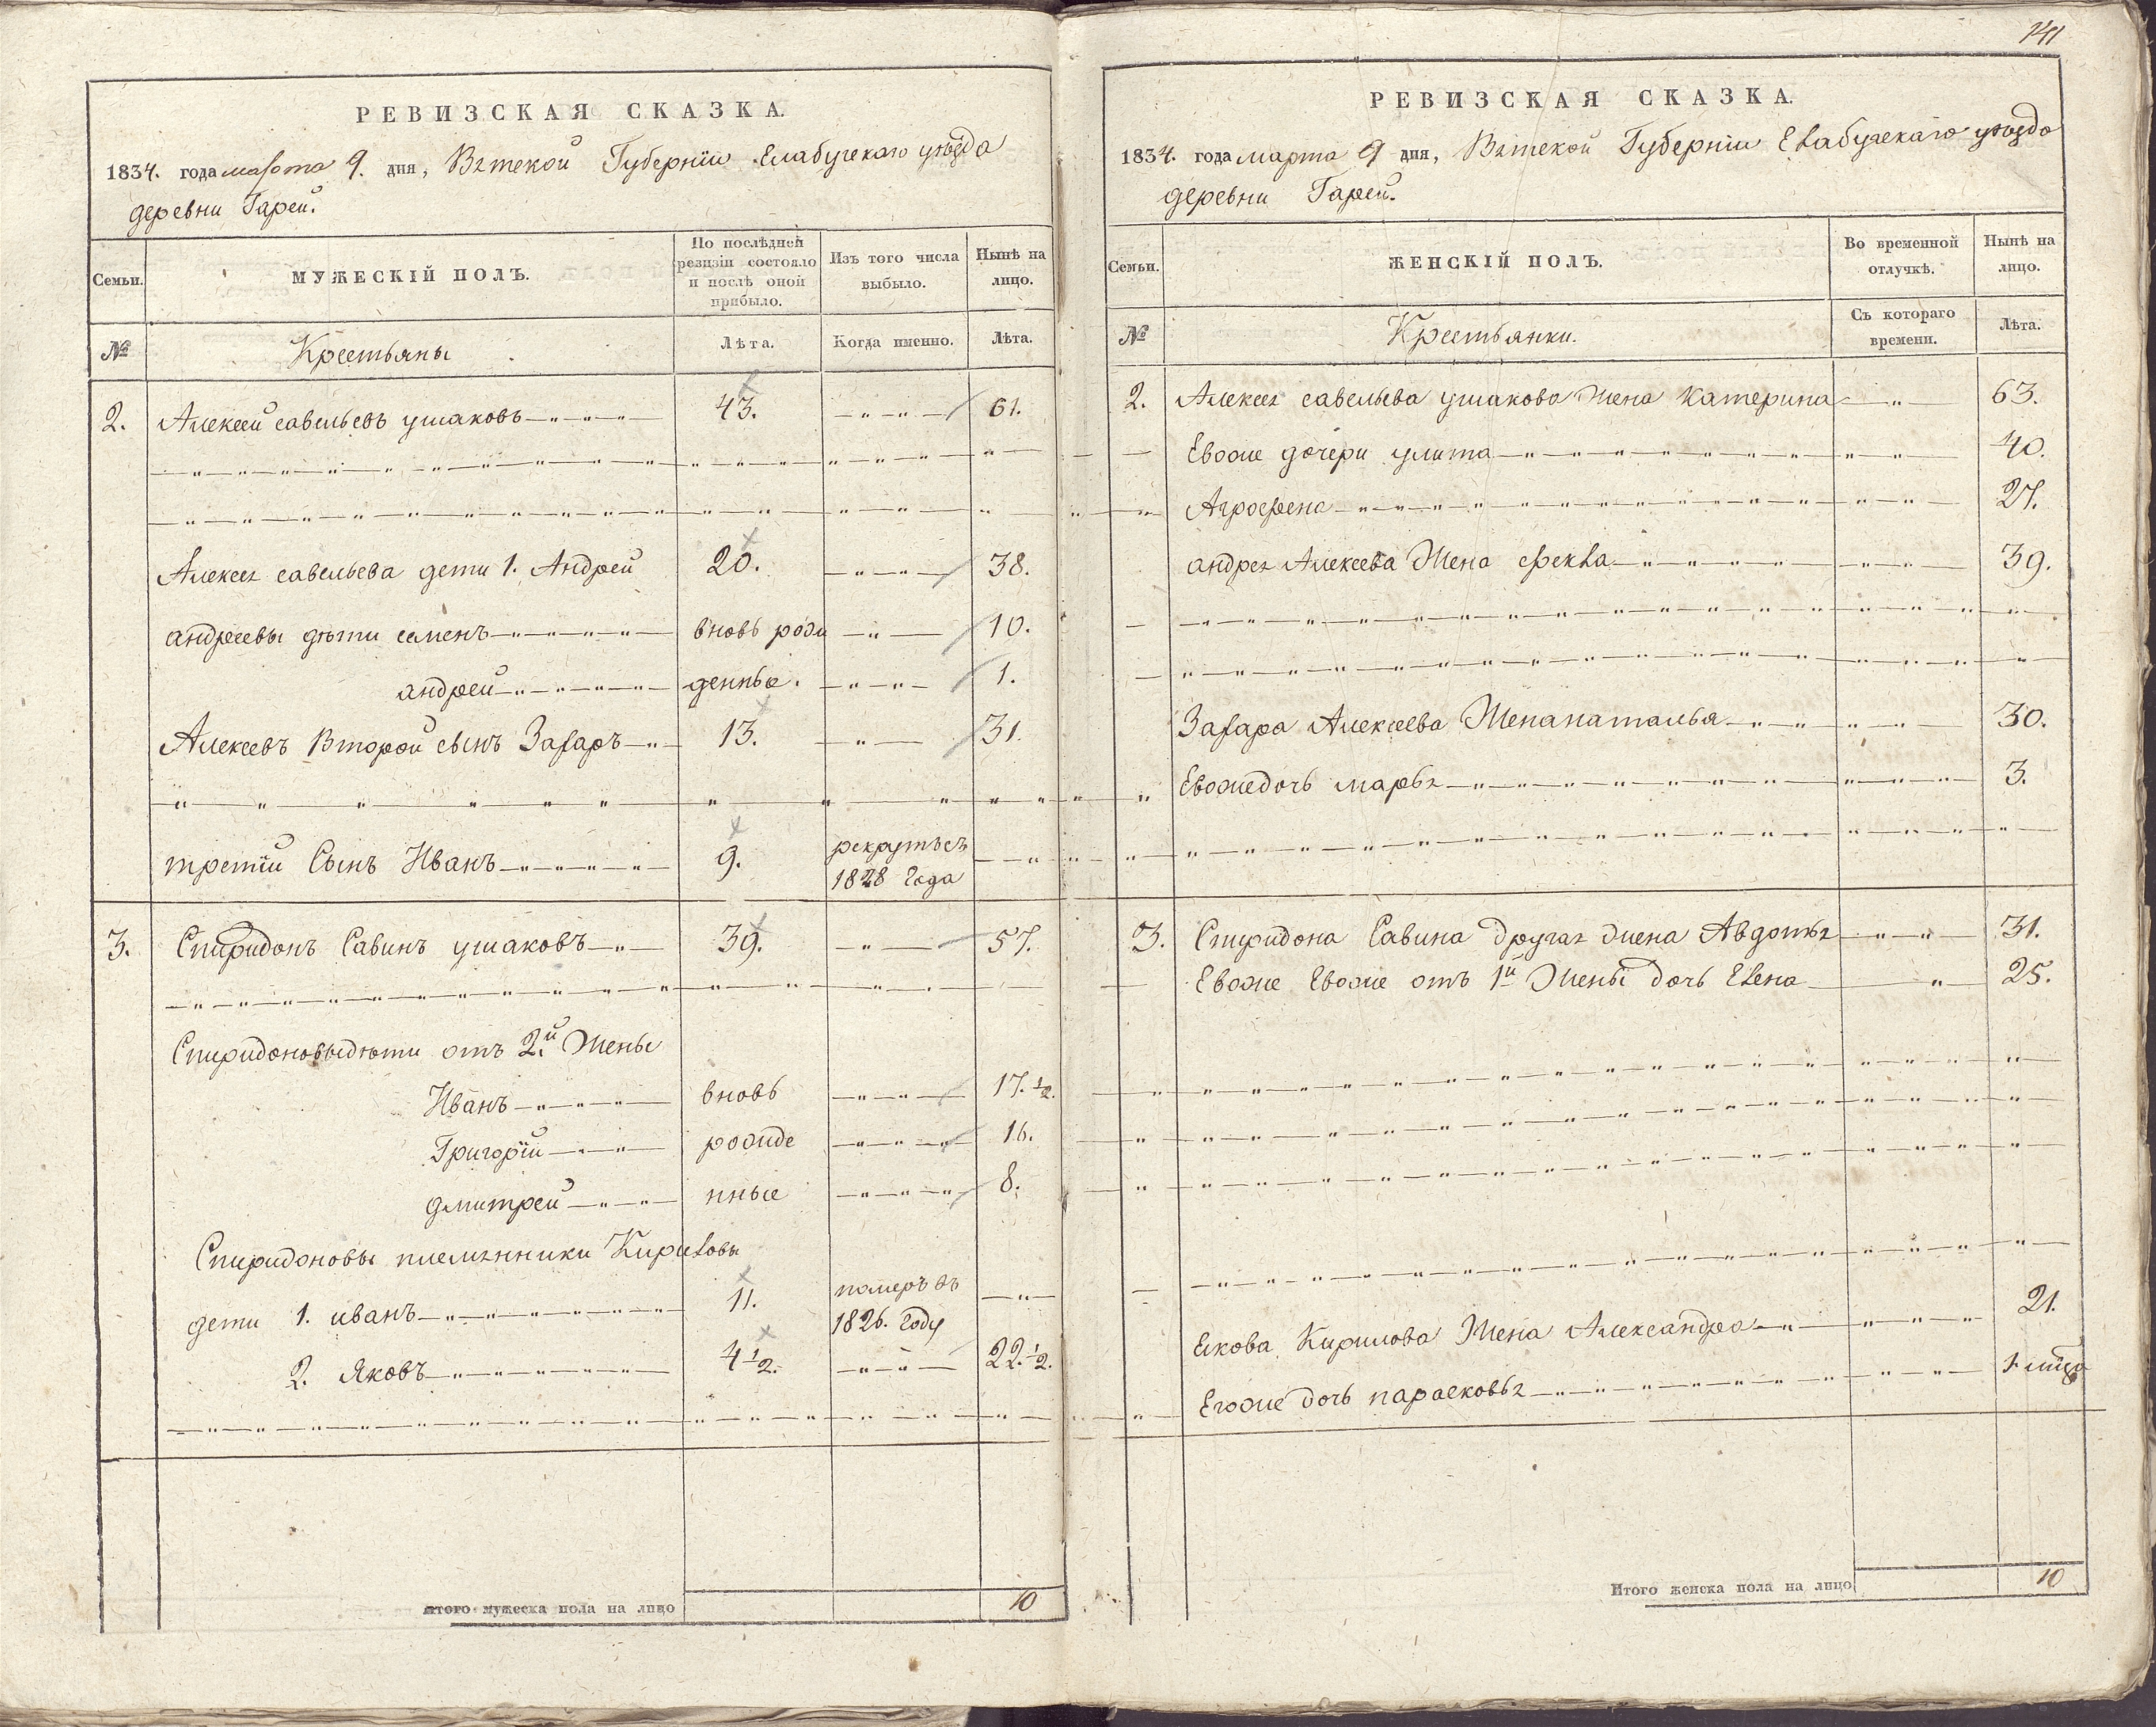 РЕВИЗСКАЯ СКАЗКА.
1834. года марта 9. дня, Вятской Губернiи Елабугскаго уѣзда
деревни Гарей.
Семьи.
МУЖЕСКІЙ ПОЛЪ.
По послѣдней ревизіи состояло и послѣ оной прибыло.
Изъ того числа выбыло.
Нынѣ на лицо.
№
Крестьяны
Лѣта.
Когда именно.
Лѣта.
2. Алексей савельевъ ушаковъ 43. 61.
Алексея савельева дети 1. Андрей 20. 38.
андреевы дѣти семенъ вновь рож 10.
андрей денные. 1.
Алексеевъ второй сынъ Захаръ 13. 31.
третiй Сынъ Иванъ 9. рекрутъ съ
1828 года
3. Спиридонъ Савинъ ушаковъ 39. 57.
Спиридоновы дѣти отъ 2й Жены
Иванъ вновь 17.½.
Григорiй рожде 16.
дмитрей нные 8.
Спиридоновы племянники Кириловы
дети 1. иванъ 11. померъ въ
1826. году
2. Яковъ 4½. 22.½.
итого мужеска пола на лицо 10
141
РЕВИЗСКАЯ СКАЗКА.
1834. года марта 9 дня, Вятской Губернiи Елабугскаго уѣзда
деревни Гарей.
Семьи.
ЖЕНСКІЙ ПОЛЪ.
Во временной отлучкѣ.
Нынѣ на лицо.
№
Крестьянки.
Съ котораго времени.
Лѣта.
2. Алексея савельева ушакова Жена Катерина 63.
Евоже дочери улита 40.
Аграфена 27.
андрея Алексеева Жена фекла 39.
Захара Алексеева Жена наталья 30.
Евоже дочь марья 3.
3. Спиридона Савина другая жена Авдотья 31.
Евоже Евоже отъ 1й Жены дочь Елена 25.
Екова Кирилова Жена Александра 21.
Егоже дочь парасковья 1 мѣсца
Итого женска пола на лицо 10